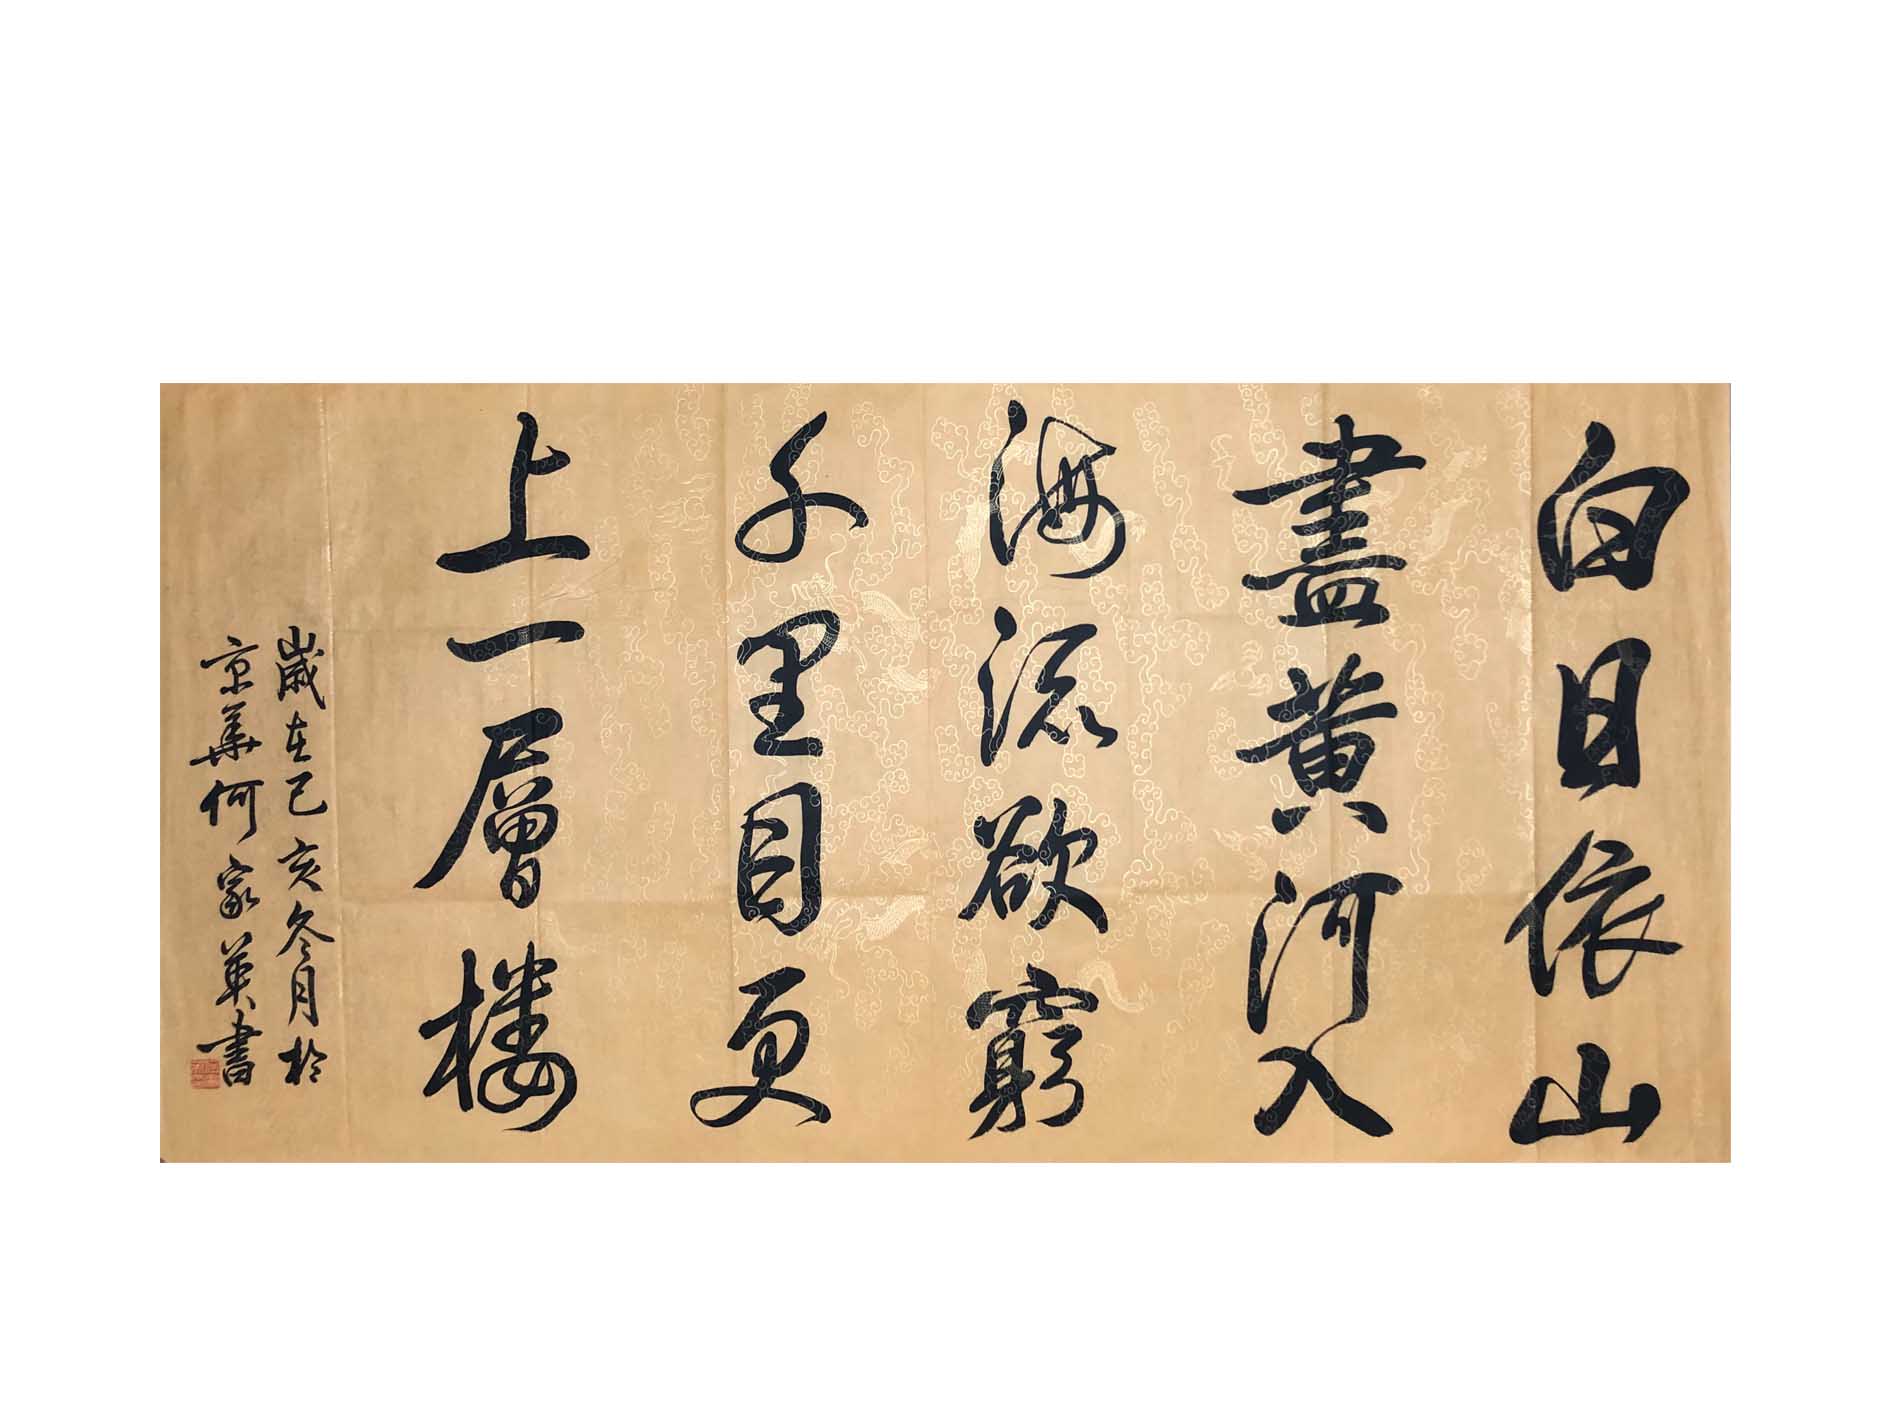 白日依山
盡黃河入
海流欲窮
千里目更
上一層樓
歲在己亥冬月於
京華何家英書